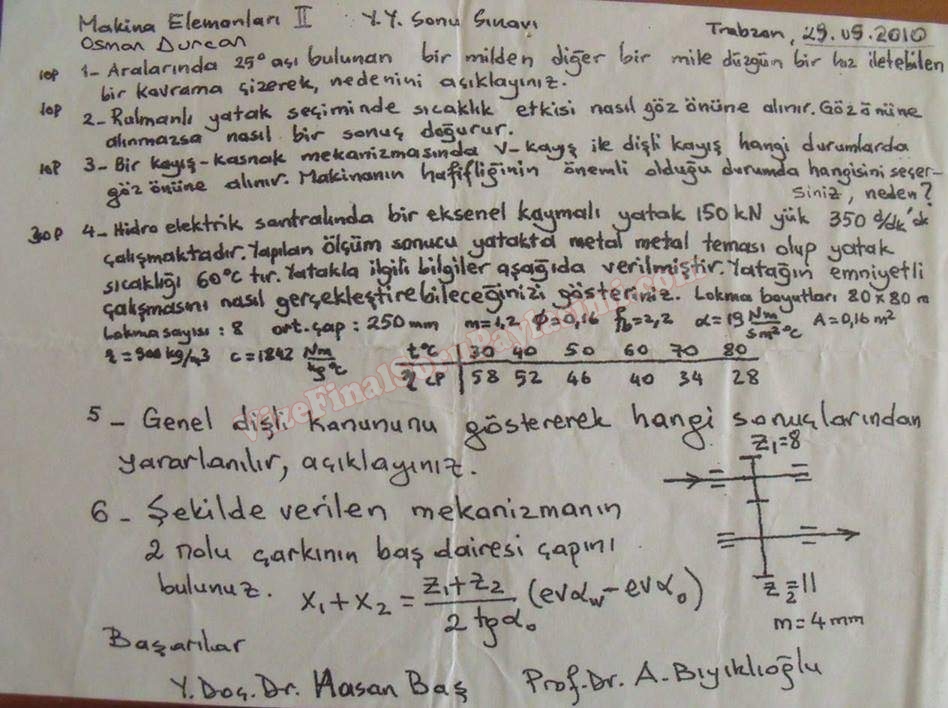 Makina Elemanları II Y.Y. Sonu Sınavı
Osman Durcan Trabzon, 29.05.2010
10P 1- Aralarında 25° açı bulunan bir milden diğer bir mile düzgün bir hız iletebilen
bir kavrama çizerek, nedenini açıklayınız.
10P 2- Rulmanlı yatak seçiminde sıcaklık etkisi nasıl göz önüne alınır. Göz önüne
alınmazsa nasıl bir sonuç doğurur.
10P 3- Bir kayış-kasnak mekanizmasında V-kayış ile dişli kayış hangi durumlarda
göz önüne alınır. Makinanın hafifliğinin önemli olduğu durumda hangisini seçer-
siniz, neden?
30P 4- Hidro elektrik santralında bir eksenel kaymalı yatak 150 kN yük 350 d/dk'dk
çalışmaktadır. Yapılan ölçüm sonucu yatakta metal metal teması olup yatak
sıcaklığı 60°C tır. Yatakla ilgili bilgiler aşağıda verilmiştir. Yatağın emniyetli
çakşmasını nasıl gerçekleştirebileceğinizi gösteriniz. Lokma boyutları 80x80 m
Lokma sayısı : 8 ort. çap : 250 mm m=1,2 φ=0,16 =2,2 α=19 Nm/sm²°C A=0,16 m²
=900 kg/m3 c=1842 Nm/kg°C t°C 30 40 50 60 70 80
η cP 58 52 46 40 34 28
5- Genel dişli kanununu göstererek hangi sonuçlarından
yararlanılır, açıklayınız.
z₁=8
6- Şekilde verilen mekanizmanın
2 nolu çarkının baş dairesi çapını
bulunuz. x₁+x₂ = z₁+z₂/2 tgα₀ (evα_w-evα₀)
z₂=11
m=4mm
Başarılar
Y.Doç.Dr. Hasan Baş Prof.Dr. A.Bıyıklıoğlu
VizeFinalSoruPaylasimi.com